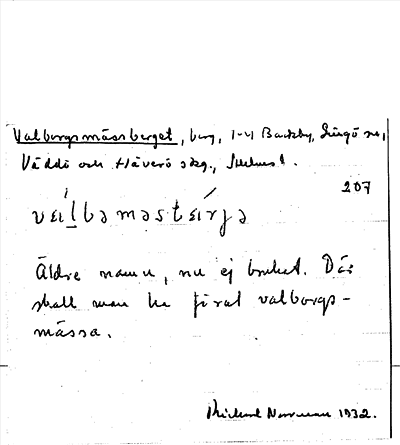 Valborgsmässberget, berg, 1-4 Backby, Singö sn,
Väddö och Häverö skg., Sthms l.
207
veilbəməsteirjə
Äldre namn, nu ej brukat. Där
skall man ha firat valborgs-
mässa.
Rickard Norrman 1932.